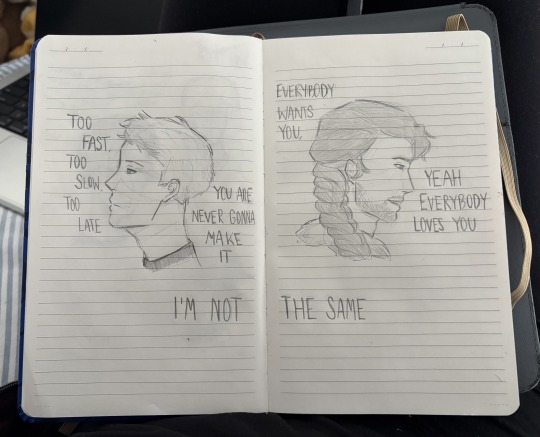 TOO
FAST,
TOO
SLOW,
TOO
LATE
YOU ARE
NEVER GONNA
MAKE
IT
I'M NOT
EVERYBODY
WANTS
YOU,
YEAH
EVERYBODY
LOVES YOU
THE SAME